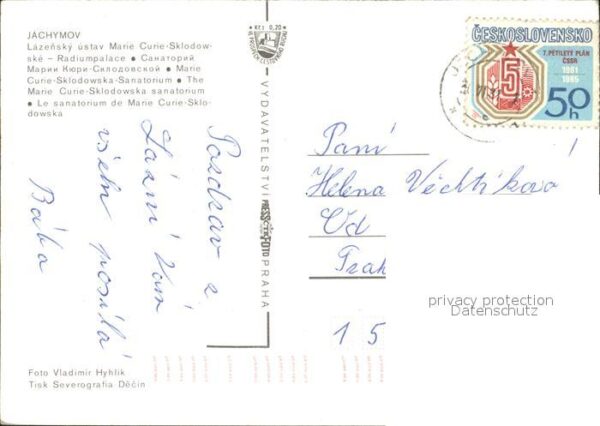 JÁCHYMOV
Lázeňský ústav Marie Curie-Sklodow-
ské – Radiumpalace • Санаторий
Марии Кюри-Склодовской • Marie
Curie-Sklodowska-Sanatorium • The
Marie Curie-Sklodowska sanatorium
• Le sanatorium de Marie Curie-Sklo-
dowska
Pozdrav z
Lázní Vám
všem posílá
Bába
Foto Vladimír Hyhlík
Tisk Severografia Děčín
Kčs 0,20
VYDAVATELSTVÍ PRESSFOTO PRAHA
ČESKOSLOVENSKO
7. PĚTILETÝ PLÁN
ČSSR
1981
1985
5
50h
Paní
Helena
Od
Prah
15
privacy protection
Datenschutz